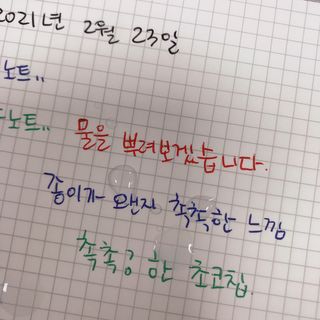 2021년 2월 23일
노트..
노트.. 물을 뿌려보겠습니다.
종이가 왠지 촉촉한 느낌
촉촉강한 초코칩.